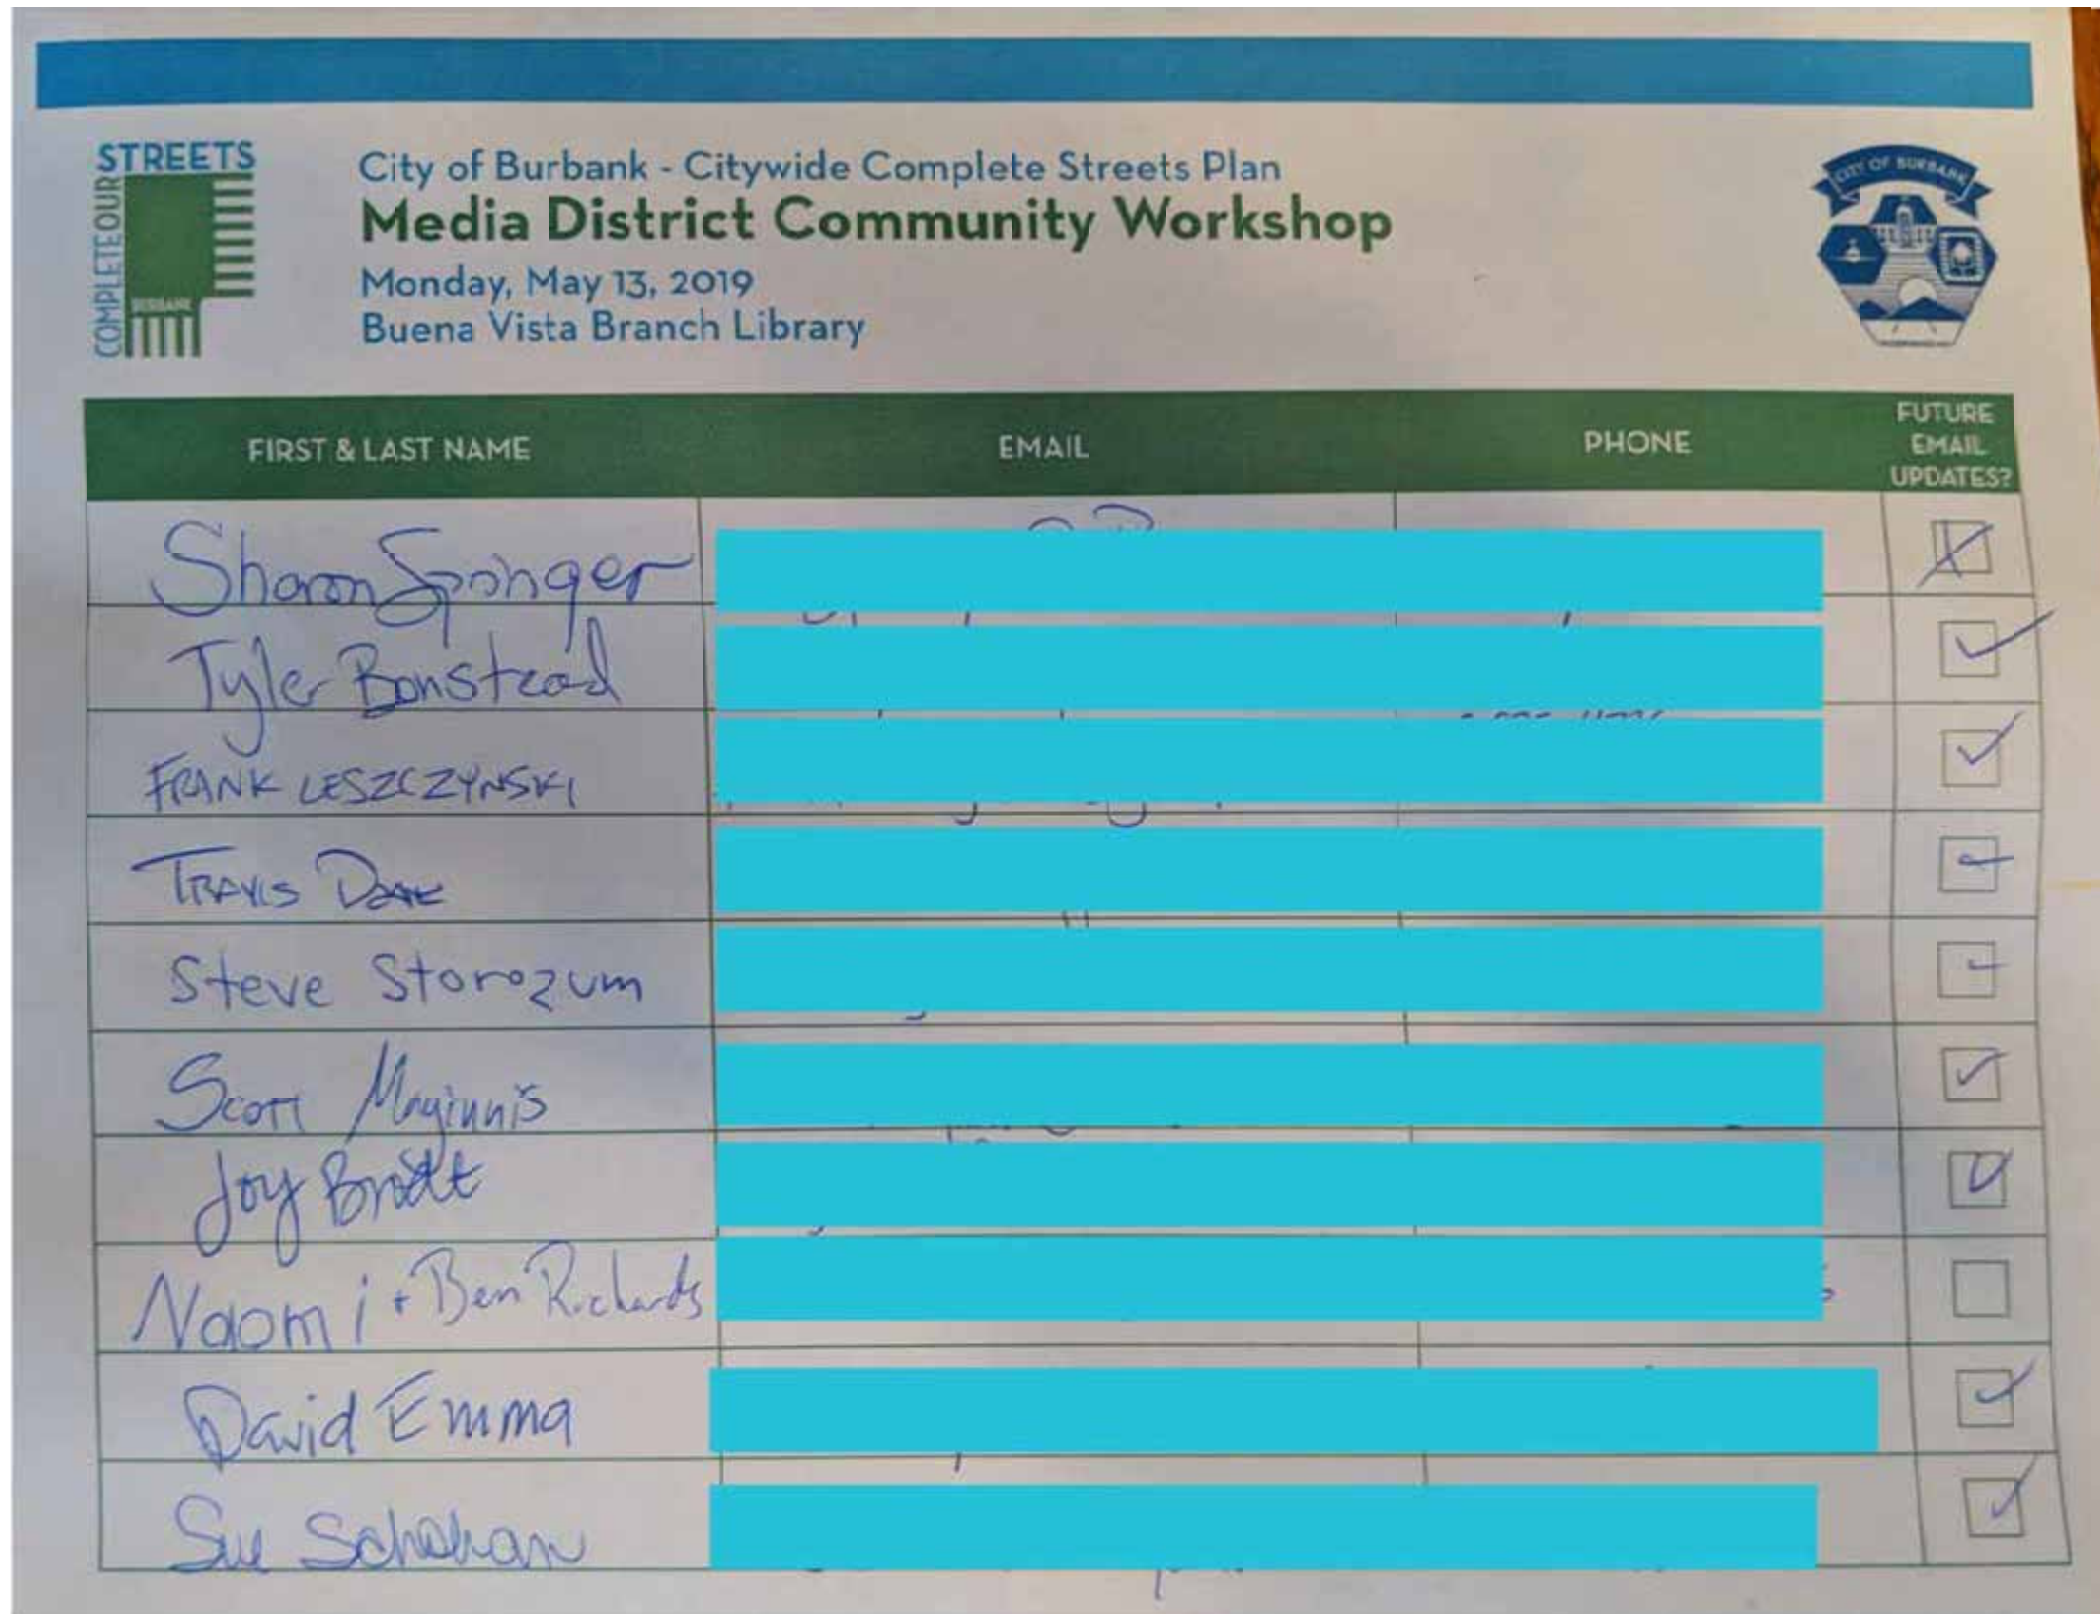 STREETS
COMPLETE OUR
BURBANK
City of Burbank - Citywide Complete Streets Plan
Media District Community Workshop
Monday, May 13, 2019
Buena Vista Branch Library
CITY OF BURBANK
FIRST & LAST NAME EMAIL PHONE FUTURE EMAIL UPDATES?
Sharon Springer
Tyler Bonstead
FRANK LESZCZYNSKI
TRAVIS
Steve Storozum
Scott Maginnis
Joy
Naomi + Ben Richards
David Emma
Sue